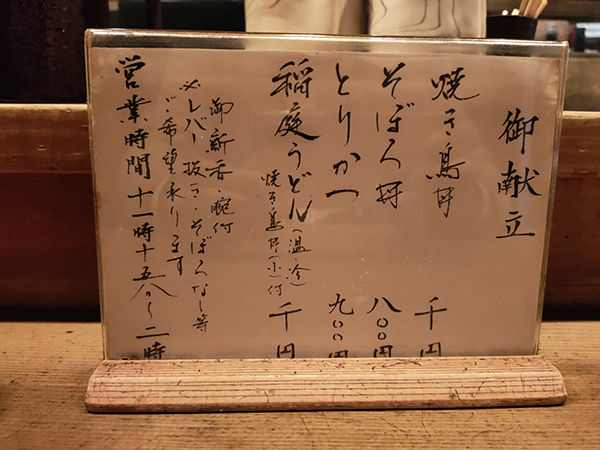 御献立
焼き鳥丼 千円
そぼろ丼 八〇〇円
とりかつ 九〇〇円
稲庭うどん(温・冷) 千円
焼き鳥丼(小)付
御新香・腕付
※レバー抜き・そぼろなし等
ご希望承ります
営業時間 十一時十五分〜二時